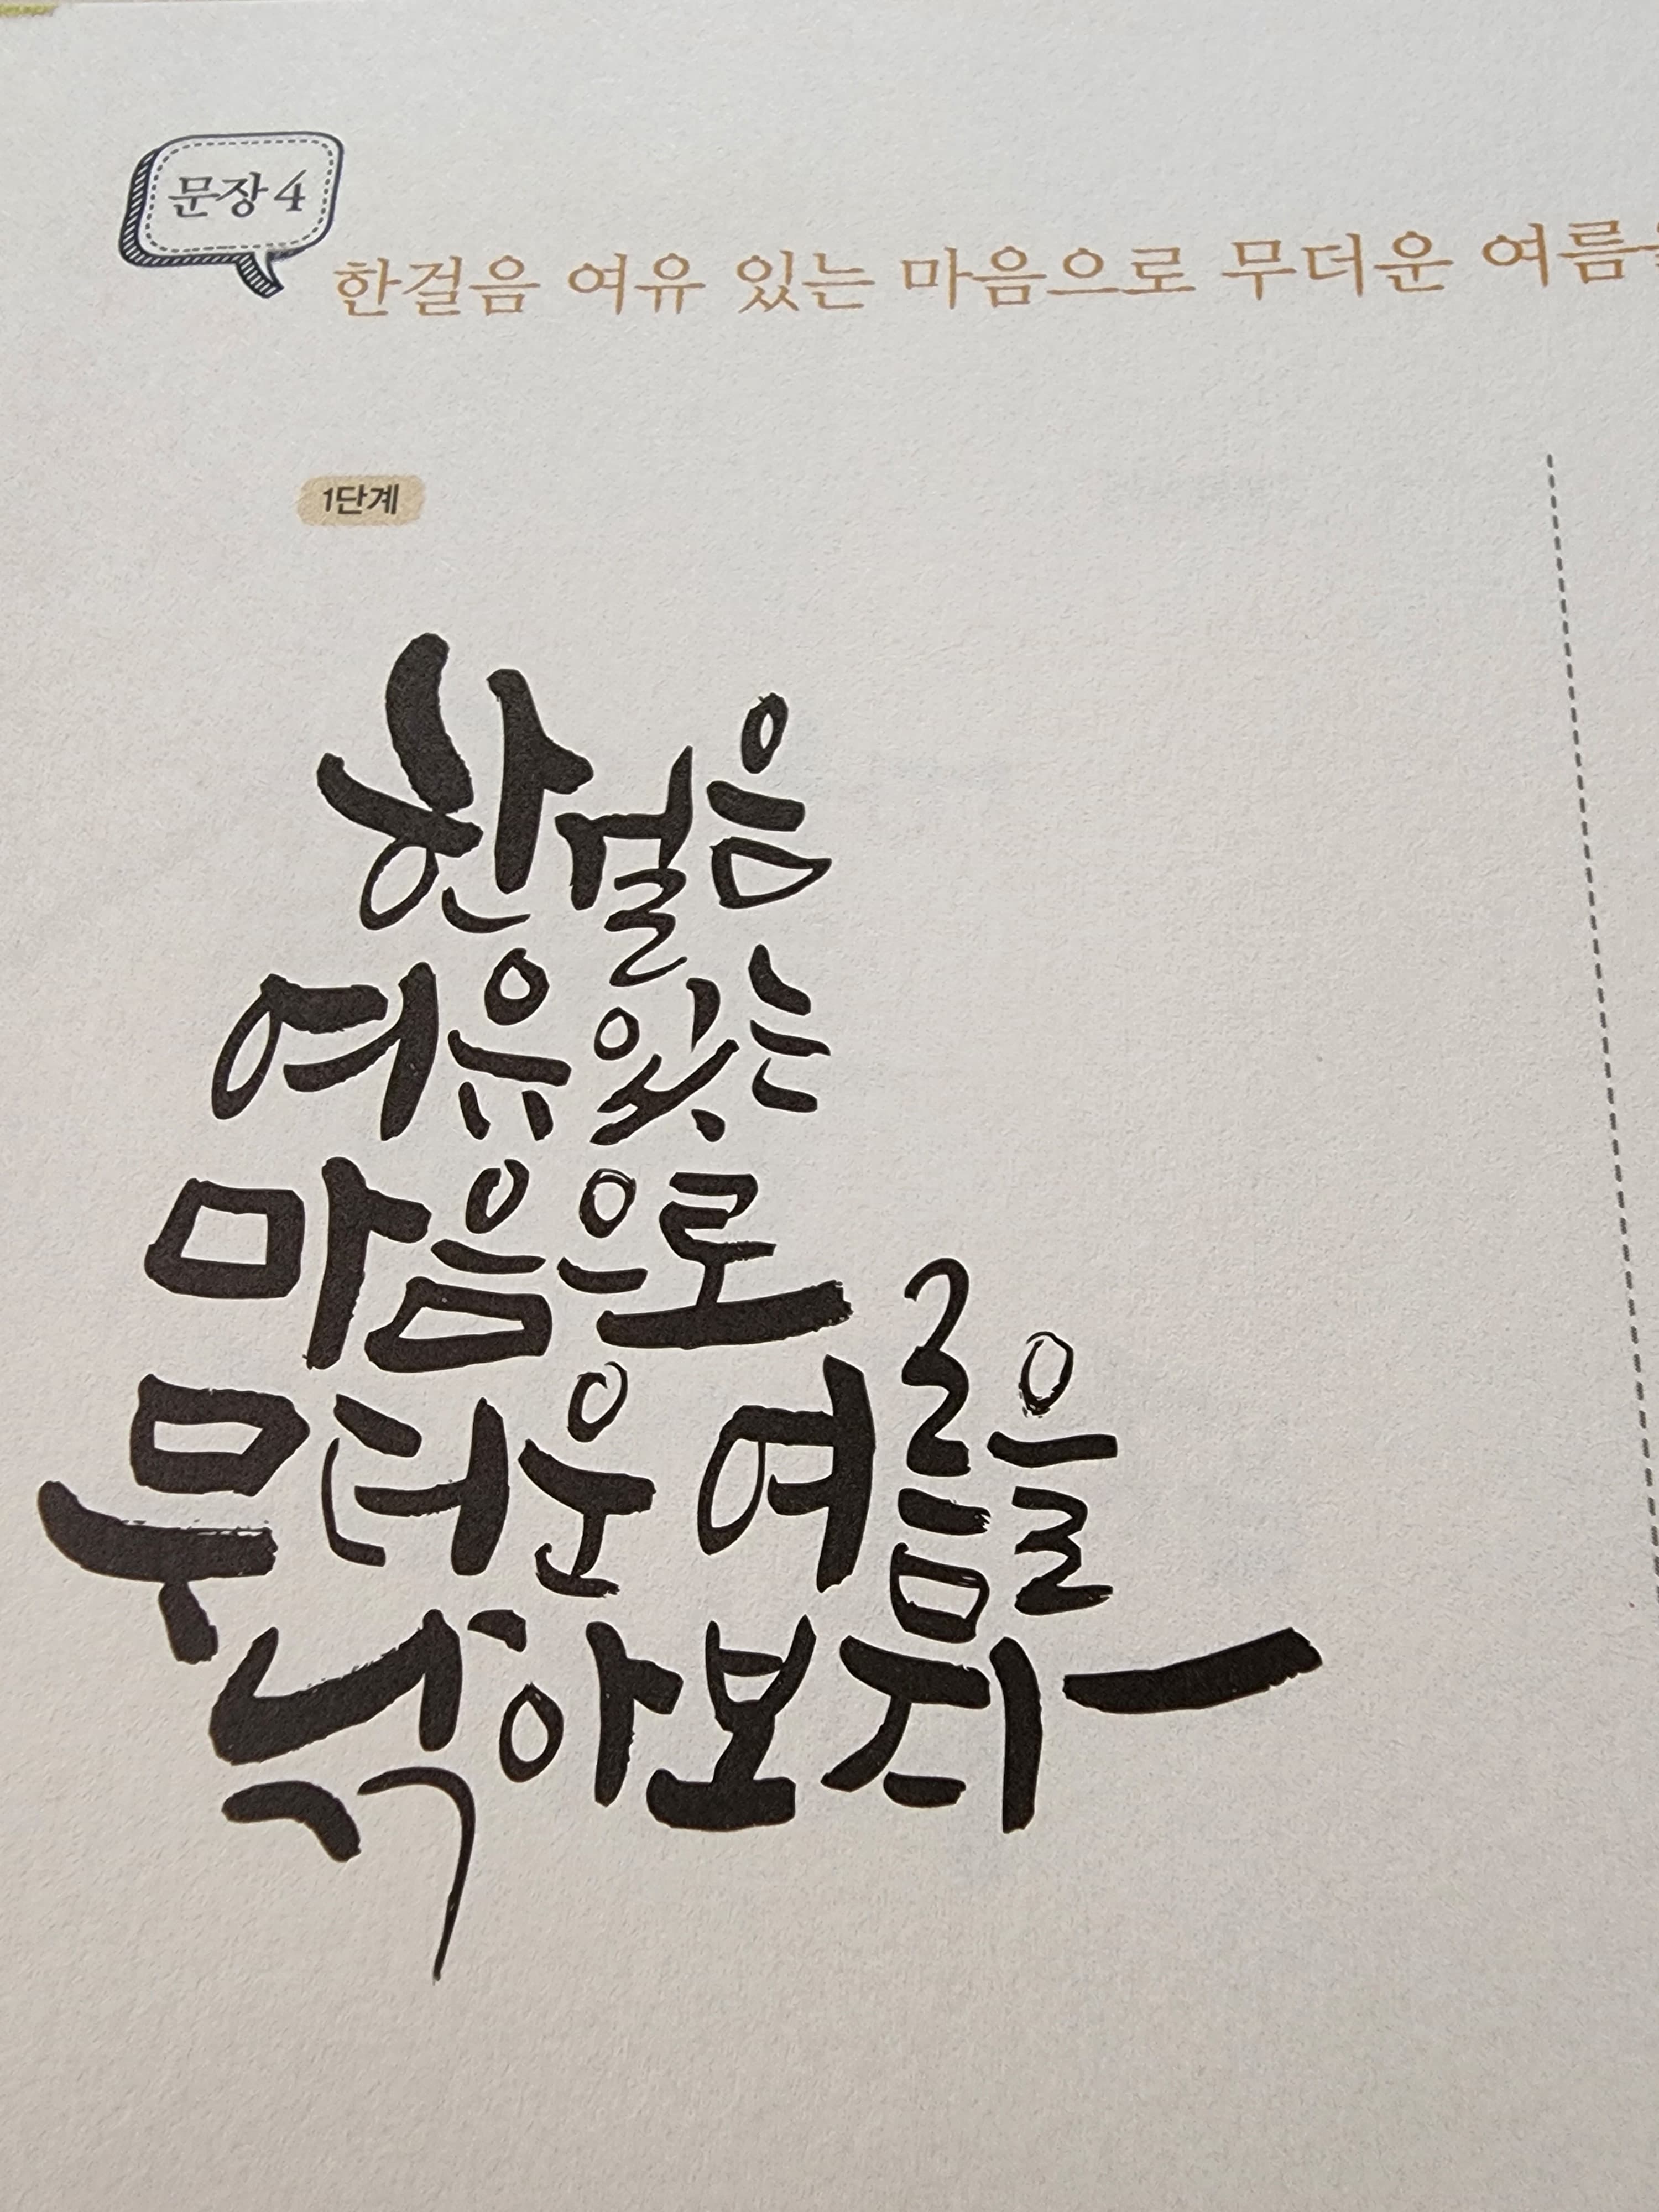 문장 4
한걸음 여유 있는 마음으로 무더운 여름을
1단계
한걸음
여유있는
마음으로
무더운 여름을
낚아보자